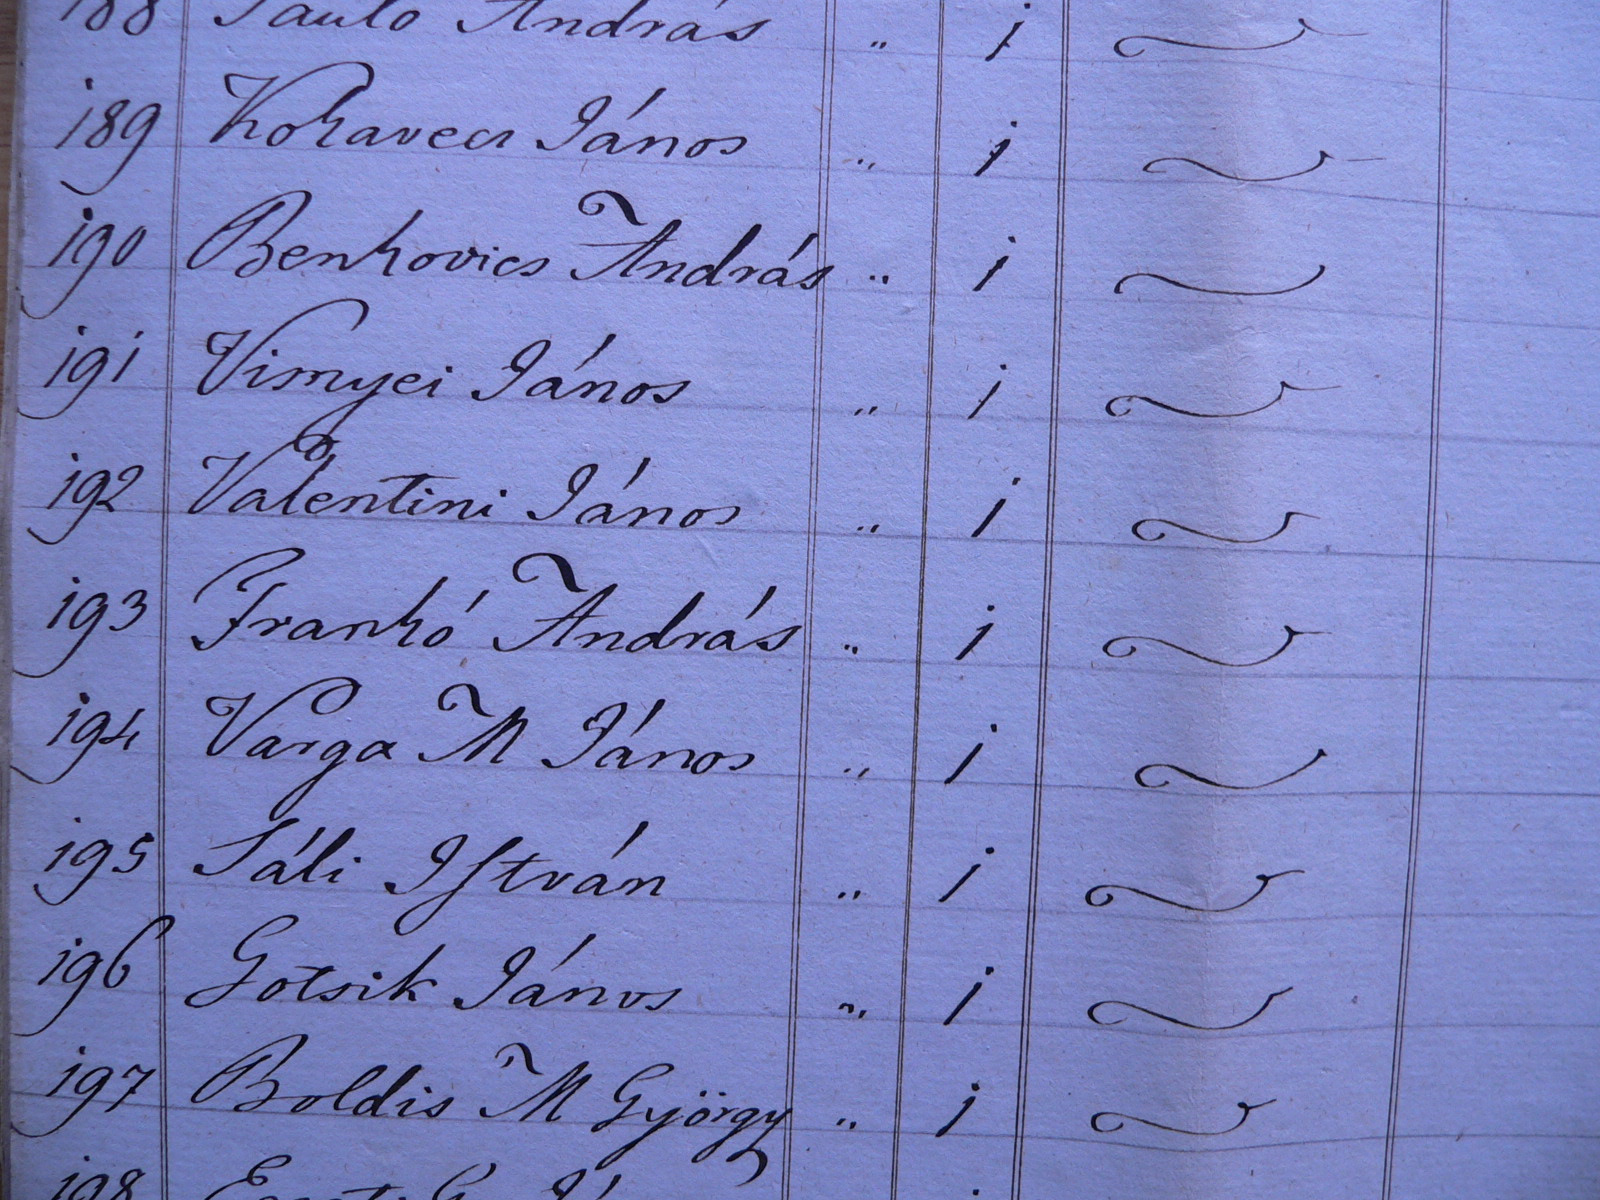 188 Paulo András " 1
189 Kohavecz János " 1
190 Benkovics András " 1
191 Vimyei János " 1
192 Valentini János " 1
193 Frankó András " 1
194 Varga M János " 1
195 Sáli István " 1
196 Gotsik János " 1
197 Boldis M György " 1
198